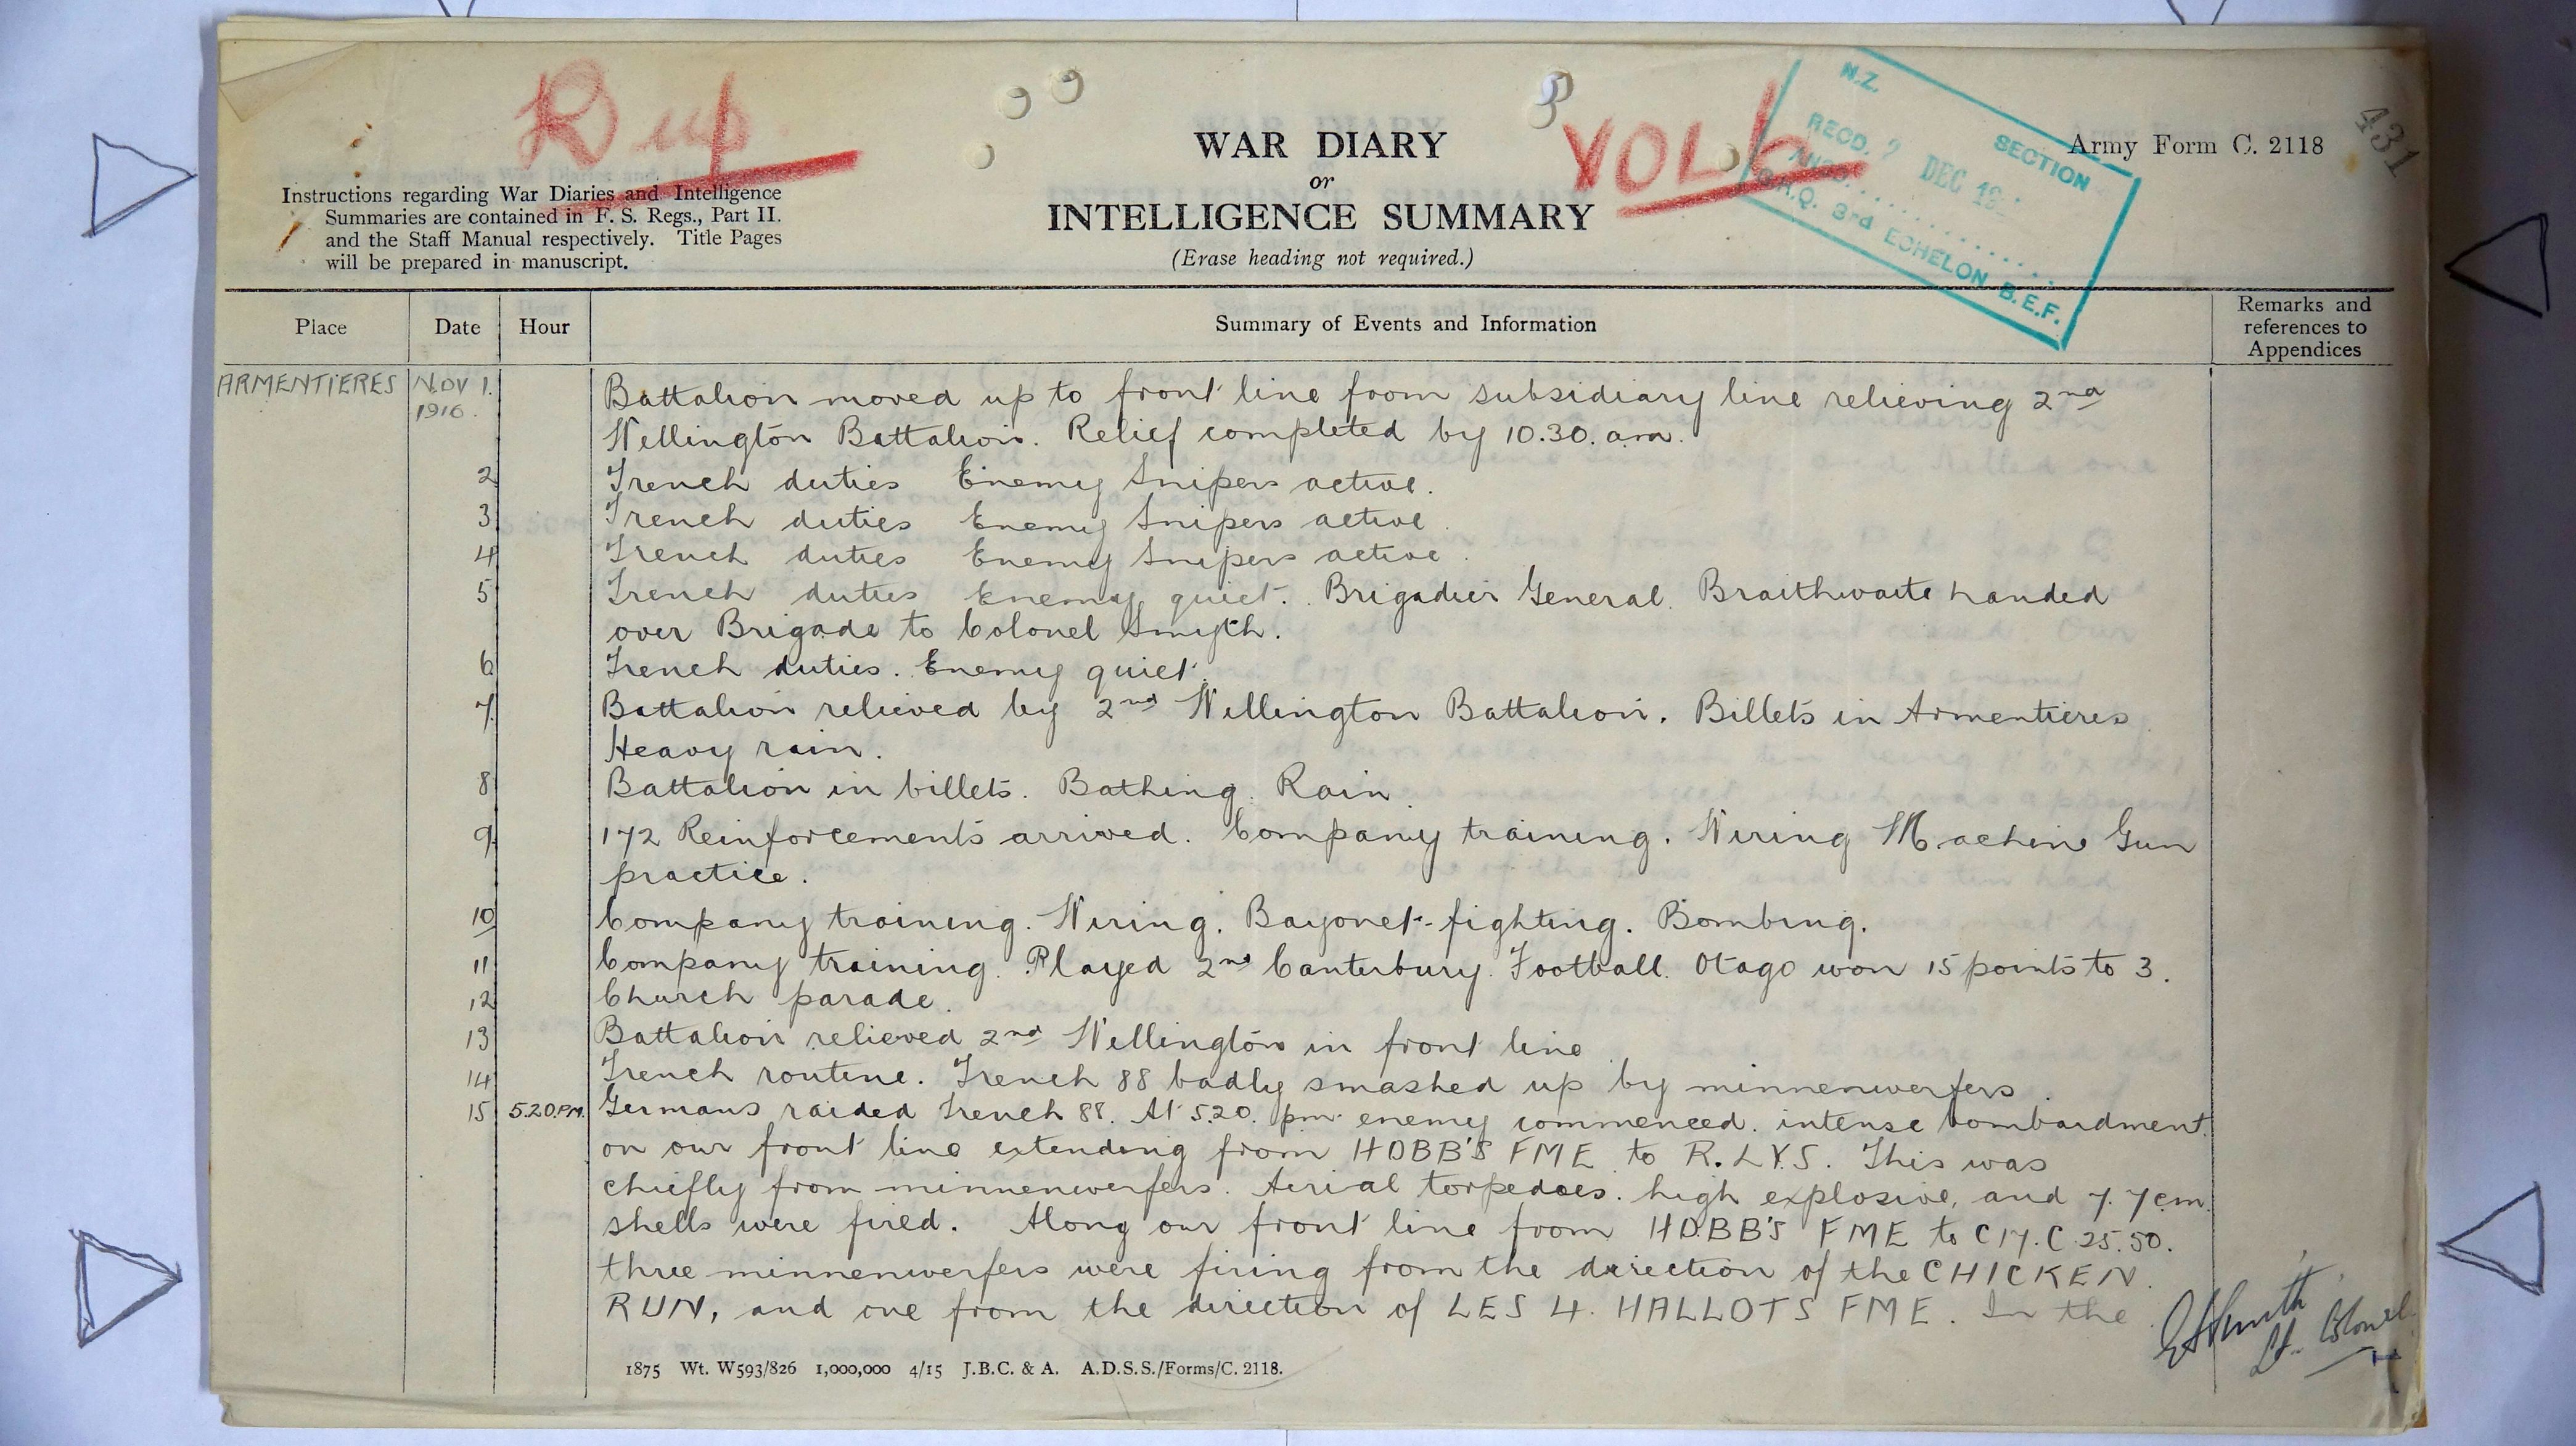 Dup
VOL 6
431
N.Z. SECTION
RECD. 9 DEC 19
G.H.Q. 3rd ECHELON B.E.F.
Army Form C. 2118
WAR DIARY
or
INTELLIGENCE SUMMARY
(Erase heading not required.)
Instructions regarding War Diaries and Intelligence
Summaries are contained in F. S. Regs., Part II.
and the Staff Manual respectively. Title Pages
will be prepared in manuscript.
Place Date Hour Summary of Events and Information Remarks and references to Appendices
ARMENTIERES Nov 1. Battalion moved up to front line from subsidiary line relieving 2nd
1916. Wellington Battalion. Relief completed by 10.30. am.
2 Trench duties Enemy Snipers active.
3 Trench duties Enemy Snipers active.
4 Trench duties Enemy Snipers active.
5 Trench duties Enemy quiet. Brigadier General Braithwaite handed
over Brigade to Colonel Smyth.
6 Trench duties. Enemy quiet.
7 Battalion relieved by 2nd Wellington Battalion. Billets in Armentieres
Heavy rain.
8 Battalion in billets. Bathing. Rain.
9 172 Reinforcements arrived. Company training. Wiring Machine Gun
practice.
10 Company training. Wiring. Bayonet-fighting. Bombing.
11 Company training. Played 2nd Canterbury. Football. Otago won 15 points to 3.
12 Church parade.
13 Battalion relieved 2nd Wellington in front line
14 Trench routine. Trench 88 badly smashed up by minnenwerfers.
15 5.20.P.M. Germans raided trench 88. At 5.20. pm. enemy commenced. intense bombardment
on our front line extending from HOBB'S FME to R. LYS. This was
chiefly from minnenwerfers. Aerial torpedoes. high explosive, and 7.7 cm.
shells were fired. Along our front line from HOBB'S FME to C17.C.25.50.
three minnenwerfers were firing from the direction of the CHICKEN
RUN, and one from the direction of LES 4. HALLOTS FME. In the
Smith
Lt. Colonel
1875 Wt. W593/826 1,000,000 4/15 J.B.C. & A. A.D.S.S./Forms/C. 2118.